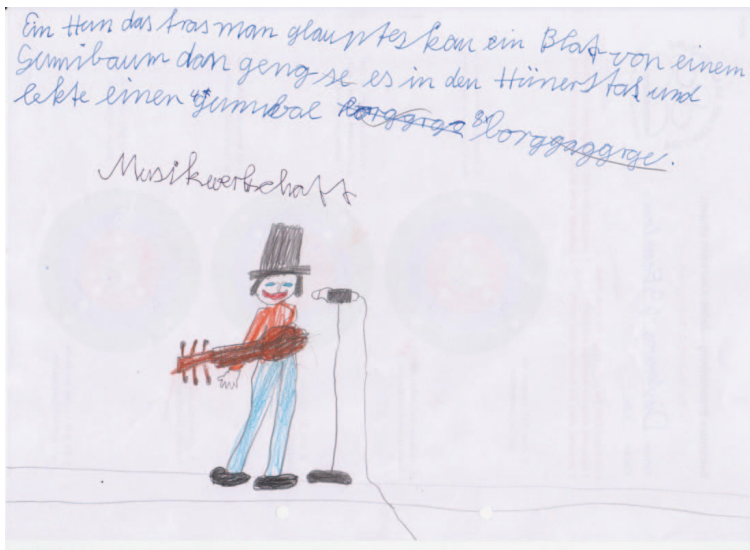 Ein Hun das fras man glauptes kau ein Blat von einem
Gumibaum dan geng se es in den Hünerstal und
lekte einen Gumibal borggagge.
Musikwertschaft